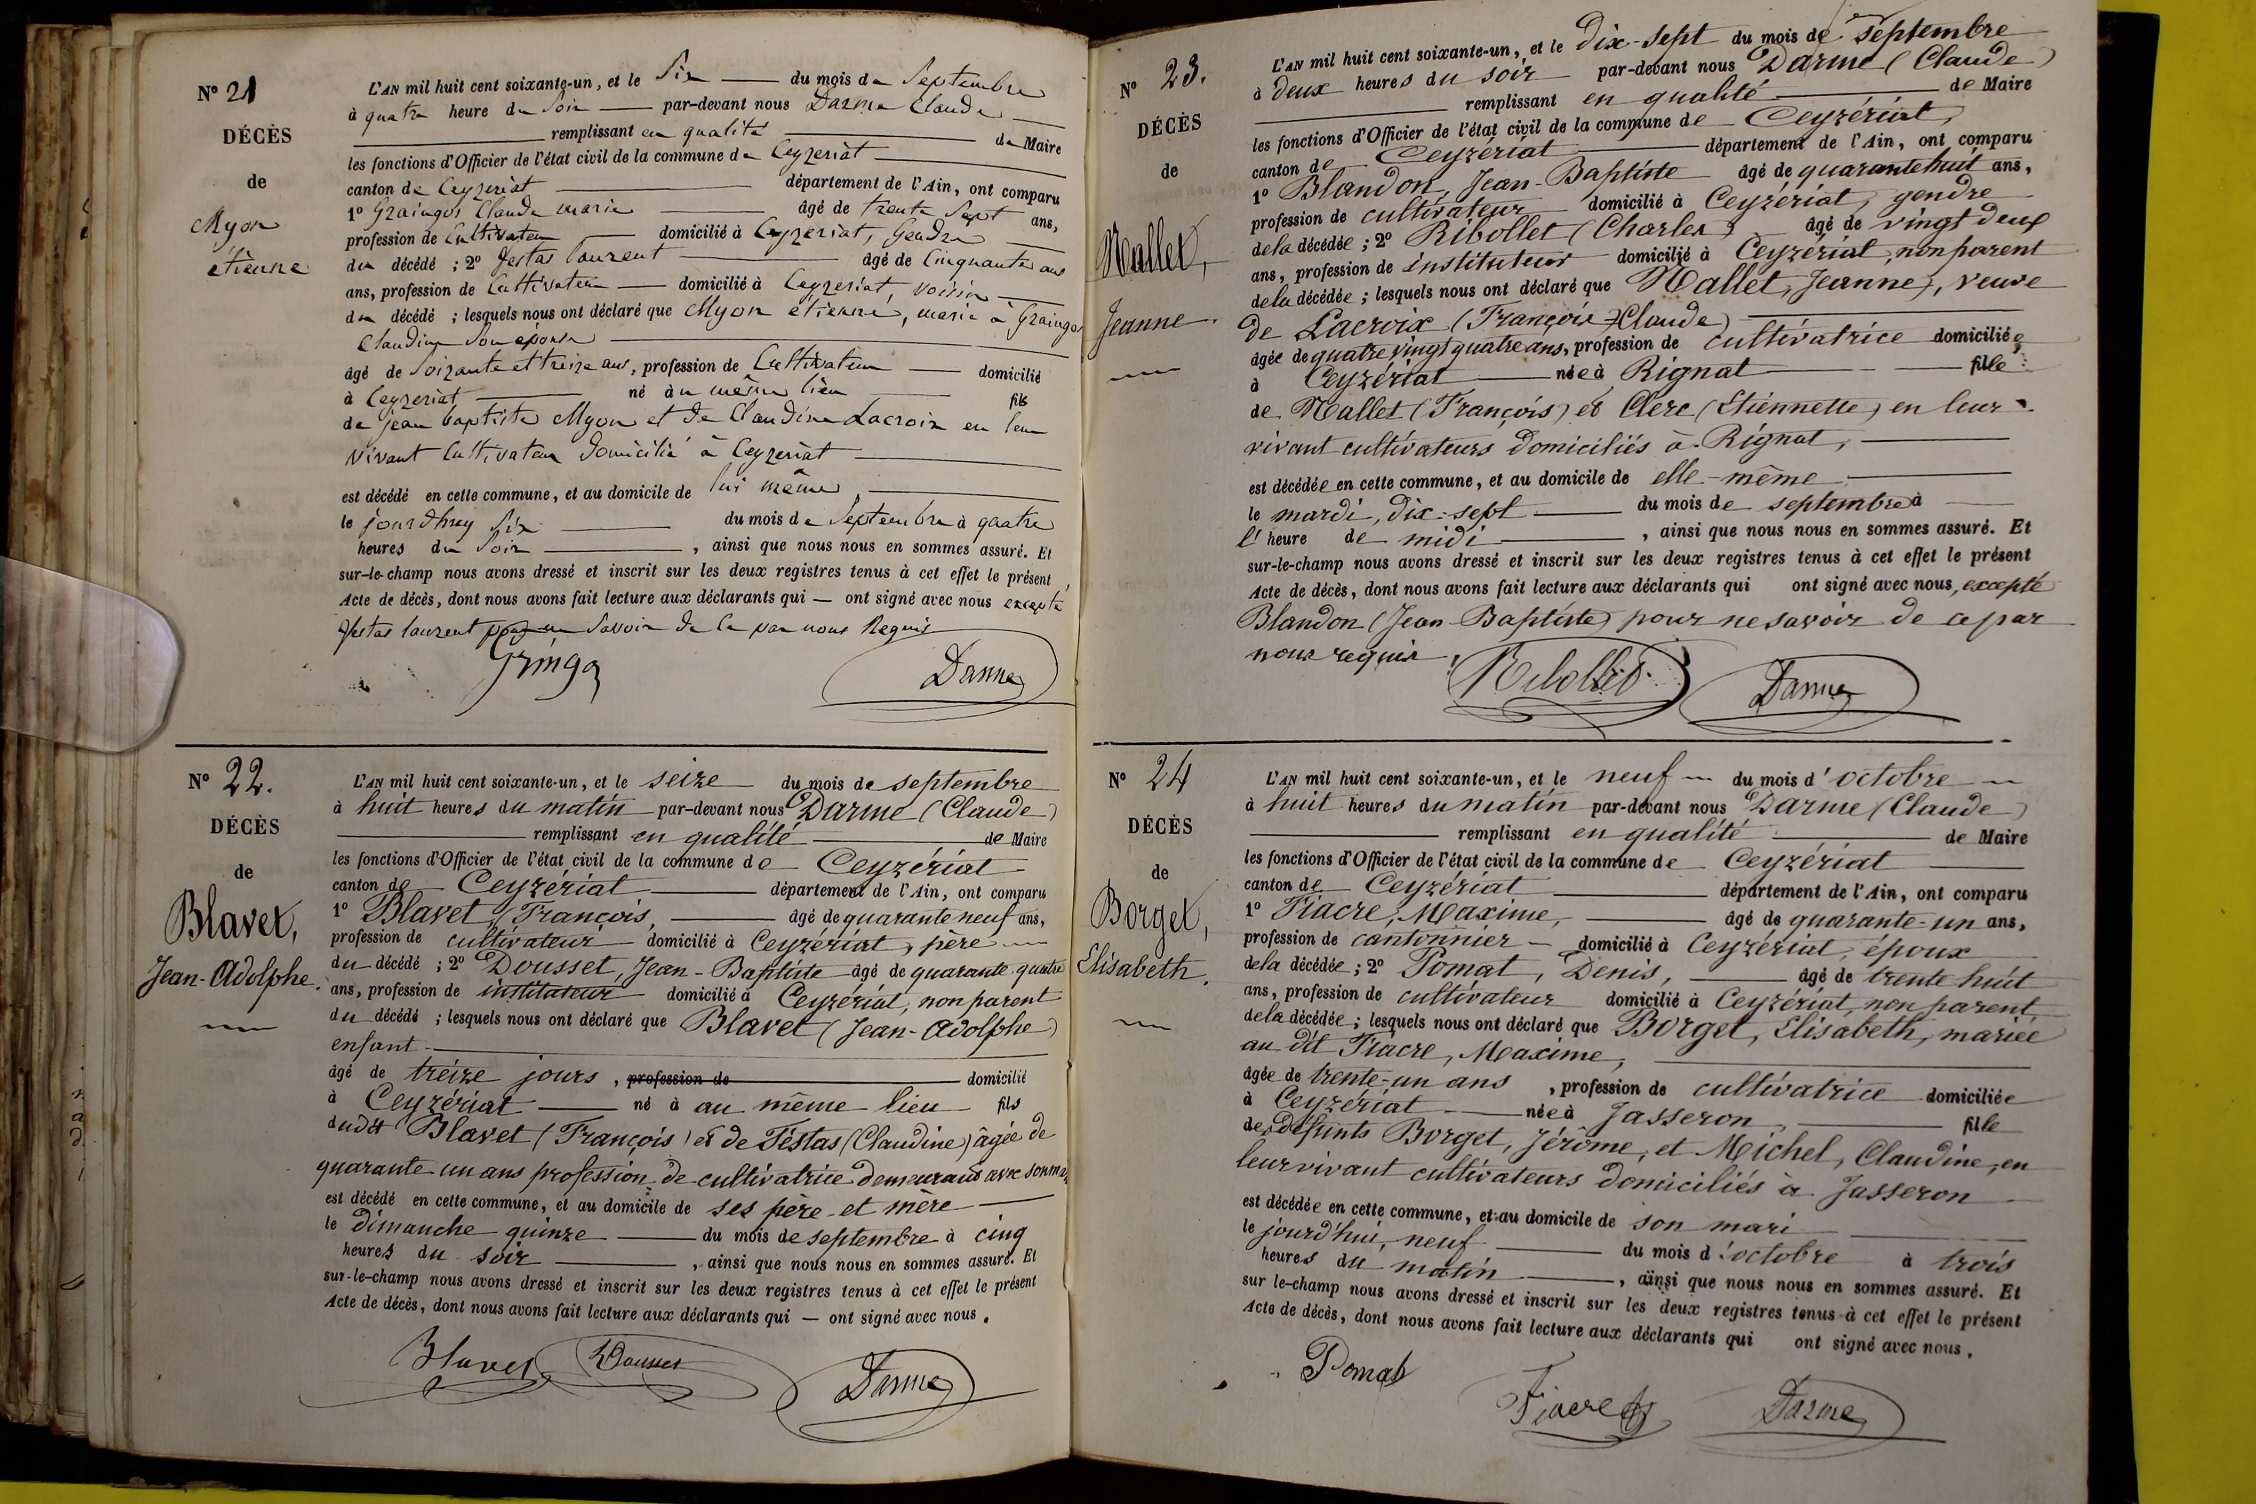 N° 21
DÉCÈS
de
Myon
étienne
L'AN mil huit cent soixante-un, et le Six du mois de Septembre
à quatre heure du Soir par-devant nous Darme Claude
remplissant en qualité de Maire
les fonctions d'Officier de l'état civil de la commune de Ceyzeriat
canton de Ceyzeriat département de l'Ain, ont comparu
1° Graingos Claude marie âgé de trente Sept ans,
profession de Cultivateur domicilié à Ceyzeriat, Gendre
du décédé ; 2° Jestas laurent âgé de Cinquante ans
ans, profession de Cultivateur domicilié à Ceyzeriat, voisin
du décédé ; lesquels nous ont déclaré que Myon étienne, marié à Graingos
Claudine Son épouse
âgé de Soixante et treize ans, profession de Cultivateur domicilié
à Ceyzeriat né au même lieu fils
de Jean baptiste Myon et de Claudine Lacroix en leur
vivant Cultivateur domicilié à Ceyzeriat
est décédé en cette commune, et au domicile de lui même
le jourdhuy Six du mois de Septembre à quatre
heures du Soir , ainsi que nous nous en sommes assuré. Et
sur-le-champ nous avons dressé et inscrit sur les deux registres tenus à cet effet le présent
Acte de décès, dont nous avons fait lecture aux déclarants qui — ont signé avec nous excepté
Jestas laurent pour ne Savoir de ce par nous Requis
Gringo Darme
N° 22.
DÉCÈS
de
Blavet,
Jean-Adolphe.
L'AN mil huit cent soixante-un, et le seize du mois de septembre
à huit heures du matin par-devant nous Darme (Claude)
remplissant en qualité de Maire
les fonctions d'Officier de l'état civil de la commune de Ceyzériat
canton de Ceyzériat département de l'Ain, ont comparu
1° Blavet, François, âgé de quarante neuf ans,
profession de cultivateur domicilié à Ceyzériat, père
du décédé ; 2° Dousset, Jean-Baptiste âgé de quarante quatre
ans, profession de instituteur domicilié à Ceyzériat, non parent
du décédé ; lesquels nous ont déclaré que Blavet (Jean-Adolphe)
enfant
âgé de treize jours , profession de domicilié
à Ceyzériat né à au même lieu fils
dudit Blavet (François) et de Testas (Claudine) âgée de
quarante-un ans profession de cultivatrice demeurant avec son mari
est décédé en cette commune, et au domicile de ses père et mère
le dimanche quinze du mois de septembre à cinq
heures du soir , ainsi que nous nous en sommes assuré. Et
sur-le-champ nous avons dressé et inscrit sur les deux registres tenus à cet effet le présent
Acte de décès, dont nous avons fait lecture aux déclarants qui — ont signé avec nous.
Blavet Dousset Darme
N° 23.
DÉCÈS
de
Mallet,
Jeanne.
L'AN mil huit cent soixante-un, et le dix-sept du mois de septembre
à deux heures du soir par-devant nous Darme (Claude)
remplissant en qualité de Maire
les fonctions d'Officier de l'état civil de la commune de Ceyzériat,
canton de Ceyzériat département de l'Ain, ont comparu
1° Blandon, Jean-Baptiste âgé de quarante huit ans,
profession de cultivateur domicilié à Ceyzériat, gendre
de la décédée ; 2° Ribollet (Charles) âgé de vingt deux
ans, profession de instituteur domicilié à Ceyzériat, non parent
de la décédée ; lesquels nous ont déclaré que Mallet, Jeanne, veuve
de Lacroix (François-Claude)
âgée de quatre vingt quatre ans, profession de cultivatrice domiciliée
à Ceyzériat née à Rignat fille
de Mallet (François) et Clerc (Etiennette) en leur
vivant cultivateurs domiciliés à Rignat,
est décédée en cette commune, et au domicile de elle-même
le mardi, dix-sept du mois de septembre à
l'heure de midi , ainsi que nous nous en sommes assuré. Et
sur-le-champ nous avons dressé et inscrit sur les deux registres tenus à cet effet le présent
Acte de décès, dont nous avons fait lecture aux déclarants qui ont signé avec nous, excepté
Blandon (Jean-Baptiste) pour ne savoir de ce par
nous requis.
Ribollet Darme
N° 24
DÉCÈS
de
Borget,
Elisabeth.
L'AN mil huit cent soixante-un, et le neuf du mois d'octobre
à huit heures du matin par-devant nous Darme (Claude)
remplissant en qualité de Maire
les fonctions d'Officier de l'état civil de la commune de Ceyzériat
canton de Ceyzériat département de l'Ain, ont comparu
1° Fiacre, Maxime, âgé de quarante-un ans,
profession de cantonnier domicilié à Ceyzériat, époux
de la décédée ; 2° Pomat, Denis, âgé de trente huit
ans, profession de cultivateur domicilié à Ceyzériat, non parent,
de la décédée ; lesquels nous ont déclaré que Borget, Elisabeth, mariée
au dit Fiacre, Maxime,
âgée de trente-un ans , profession de cultivatrice domiciliée
à Ceyzériat née à Jasseron fille
de défunts Borget, Jérôme, et Michel, Claudine, en
leur vivant cultivateurs domiciliés à Jasseron
est décédée en cette commune, et au domicile de son mari
le jourd'hui, neuf du mois d'octobre à trois
heures du matin , ainsi que nous nous en sommes assuré. Et
sur le-champ nous avons dressé et inscrit sur les deux registres tenus à cet effet le présent
Acte de décès, dont nous avons fait lecture aux déclarants qui ont signé avec nous.
Pomat
Fiacre Darme